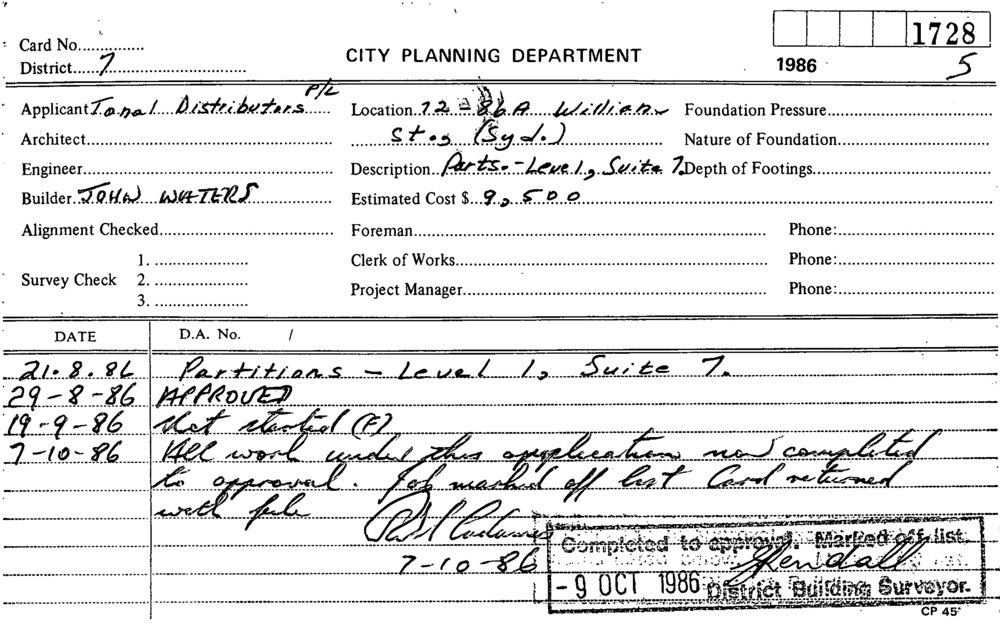 1728
Card No...............
CITY PLANNING DEPARTMENT
District.....7..............................
1986 5
Applicant Tonal Distributors P/L Location 72-86A William Foundation Pressure....................
Architect............................................ Sts (Syd.) Nature of Foundation....................
Engineer............................................ Description Parts.-Level 1, Suite 7. Depth of Footings....................
Builder JOHN WATERS Estimated Cost $ 9,500
Alignment Checked.................................. Foreman.................................. Phone:....................
1. .................... Clerk of Works.................................. Phone:....................
Survey Check 2. ....................
3. .................... Project Manager.................................. Phone:....................
DATE D.A. No. /
21.8.86 Partitions - Level 1, Suite 7.
29-8-86 APPROVED
19-9-86 Not started (F)
7-10-86 All work under this application now completed
to approval. Job marked off list Card returned
with file
7-10-86
Completed to approval. Marked off list.
- 9 OCT 1986 District Building Surveyor.
CP 45